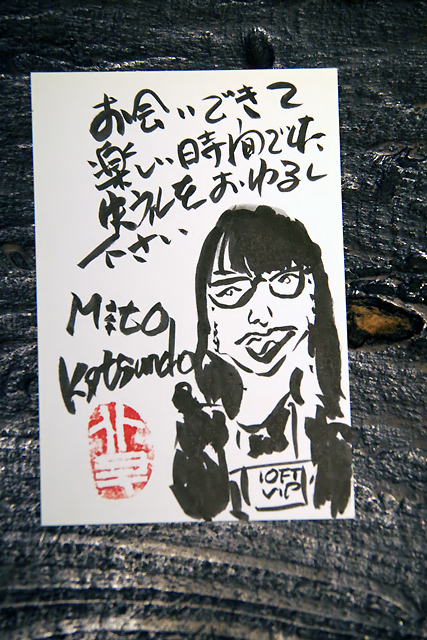 お会いできて
楽しい時間でした
失礼をおゆるし
下さい
Mito
Katsundo
LOFT
VIP